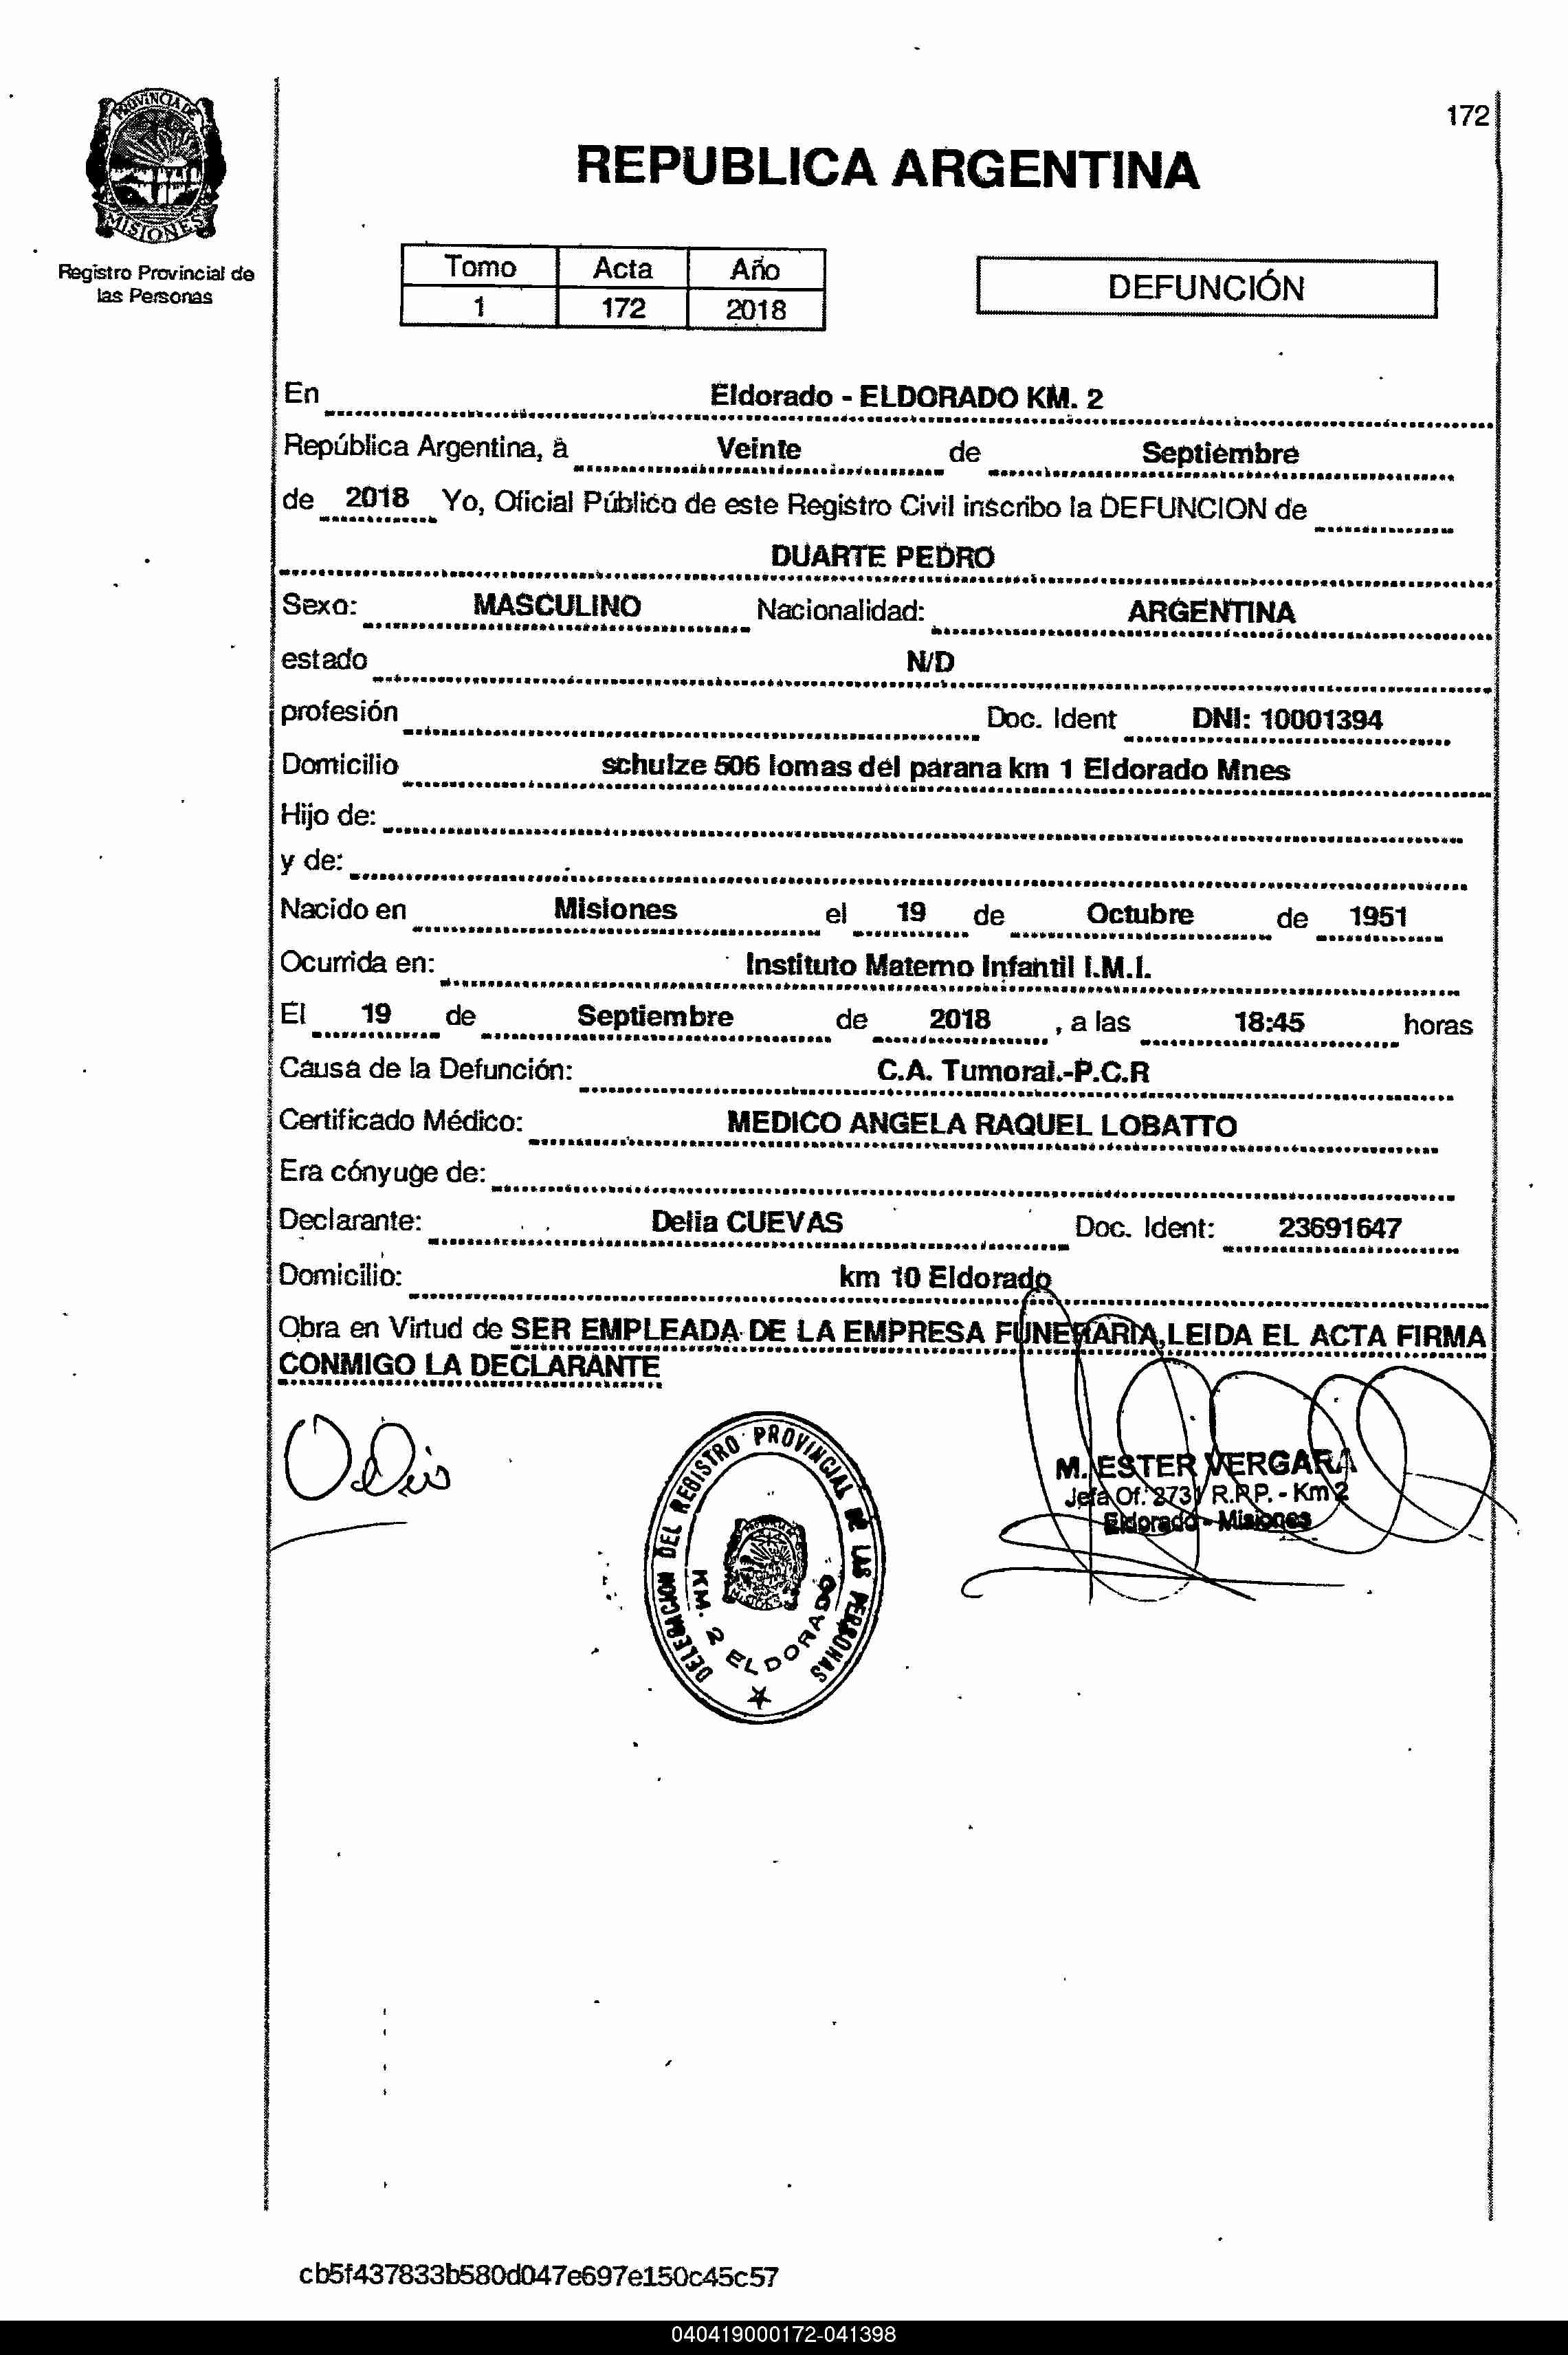 172
PROVINCIA DE
MISIONES
Registro Provincial de
las Personas
REPUBLICA ARGENTINA
Tomo Acta Año
1 172 2018
DEFUNCIÓN
En Eldorado - ELDORADO KM. 2
República Argentina, a Veinte de Septiembre
de 2018 Yo, Oficial Público de este Registro Civil inscribo la DEFUNCION de
DUARTE PEDRO
Sexo: MASCULINO Nacionalidad: ARGENTINA
estado N/D
profesión Doc. Ident DNI: 10001394
Domicilio schulze 506 lomas del parana km 1 Eldorado Mnes
Hijo de:
y de:
Nacido en Misiones el 19 de Octubre de 1951
Ocurrida en: Instituto Materno Infantil I.M.I.
El 19 de Septiembre de 2018 , a las 18:45 horas
Causa de la Defunción: C.A. Tumoral.-P.C.R
Certificado Médico: MEDICO ANGELA RAQUEL LOBATTO
Era cónyuge de:
Declarante: Delia CUEVAS Doc. Ident: 23691647
Domicilio: km 10 Eldorado
Obra en Virtud de SER EMPLEADA DE LA EMPRESA FUNERARIA,LEIDA EL ACTA FIRMA
CONMIGO LA DECLARANTE
DELEGACION DEL REGISTRO PROVINCIAL DE LAS PERSONAS
KM. 2 ELDORADO
M. ESTER VERGARA
Jefa Of. 2731 R.P.P. - Km 2
Eldorado - Misiones
cb5f437833b580d047e697e150c45c57
040419000172-041398